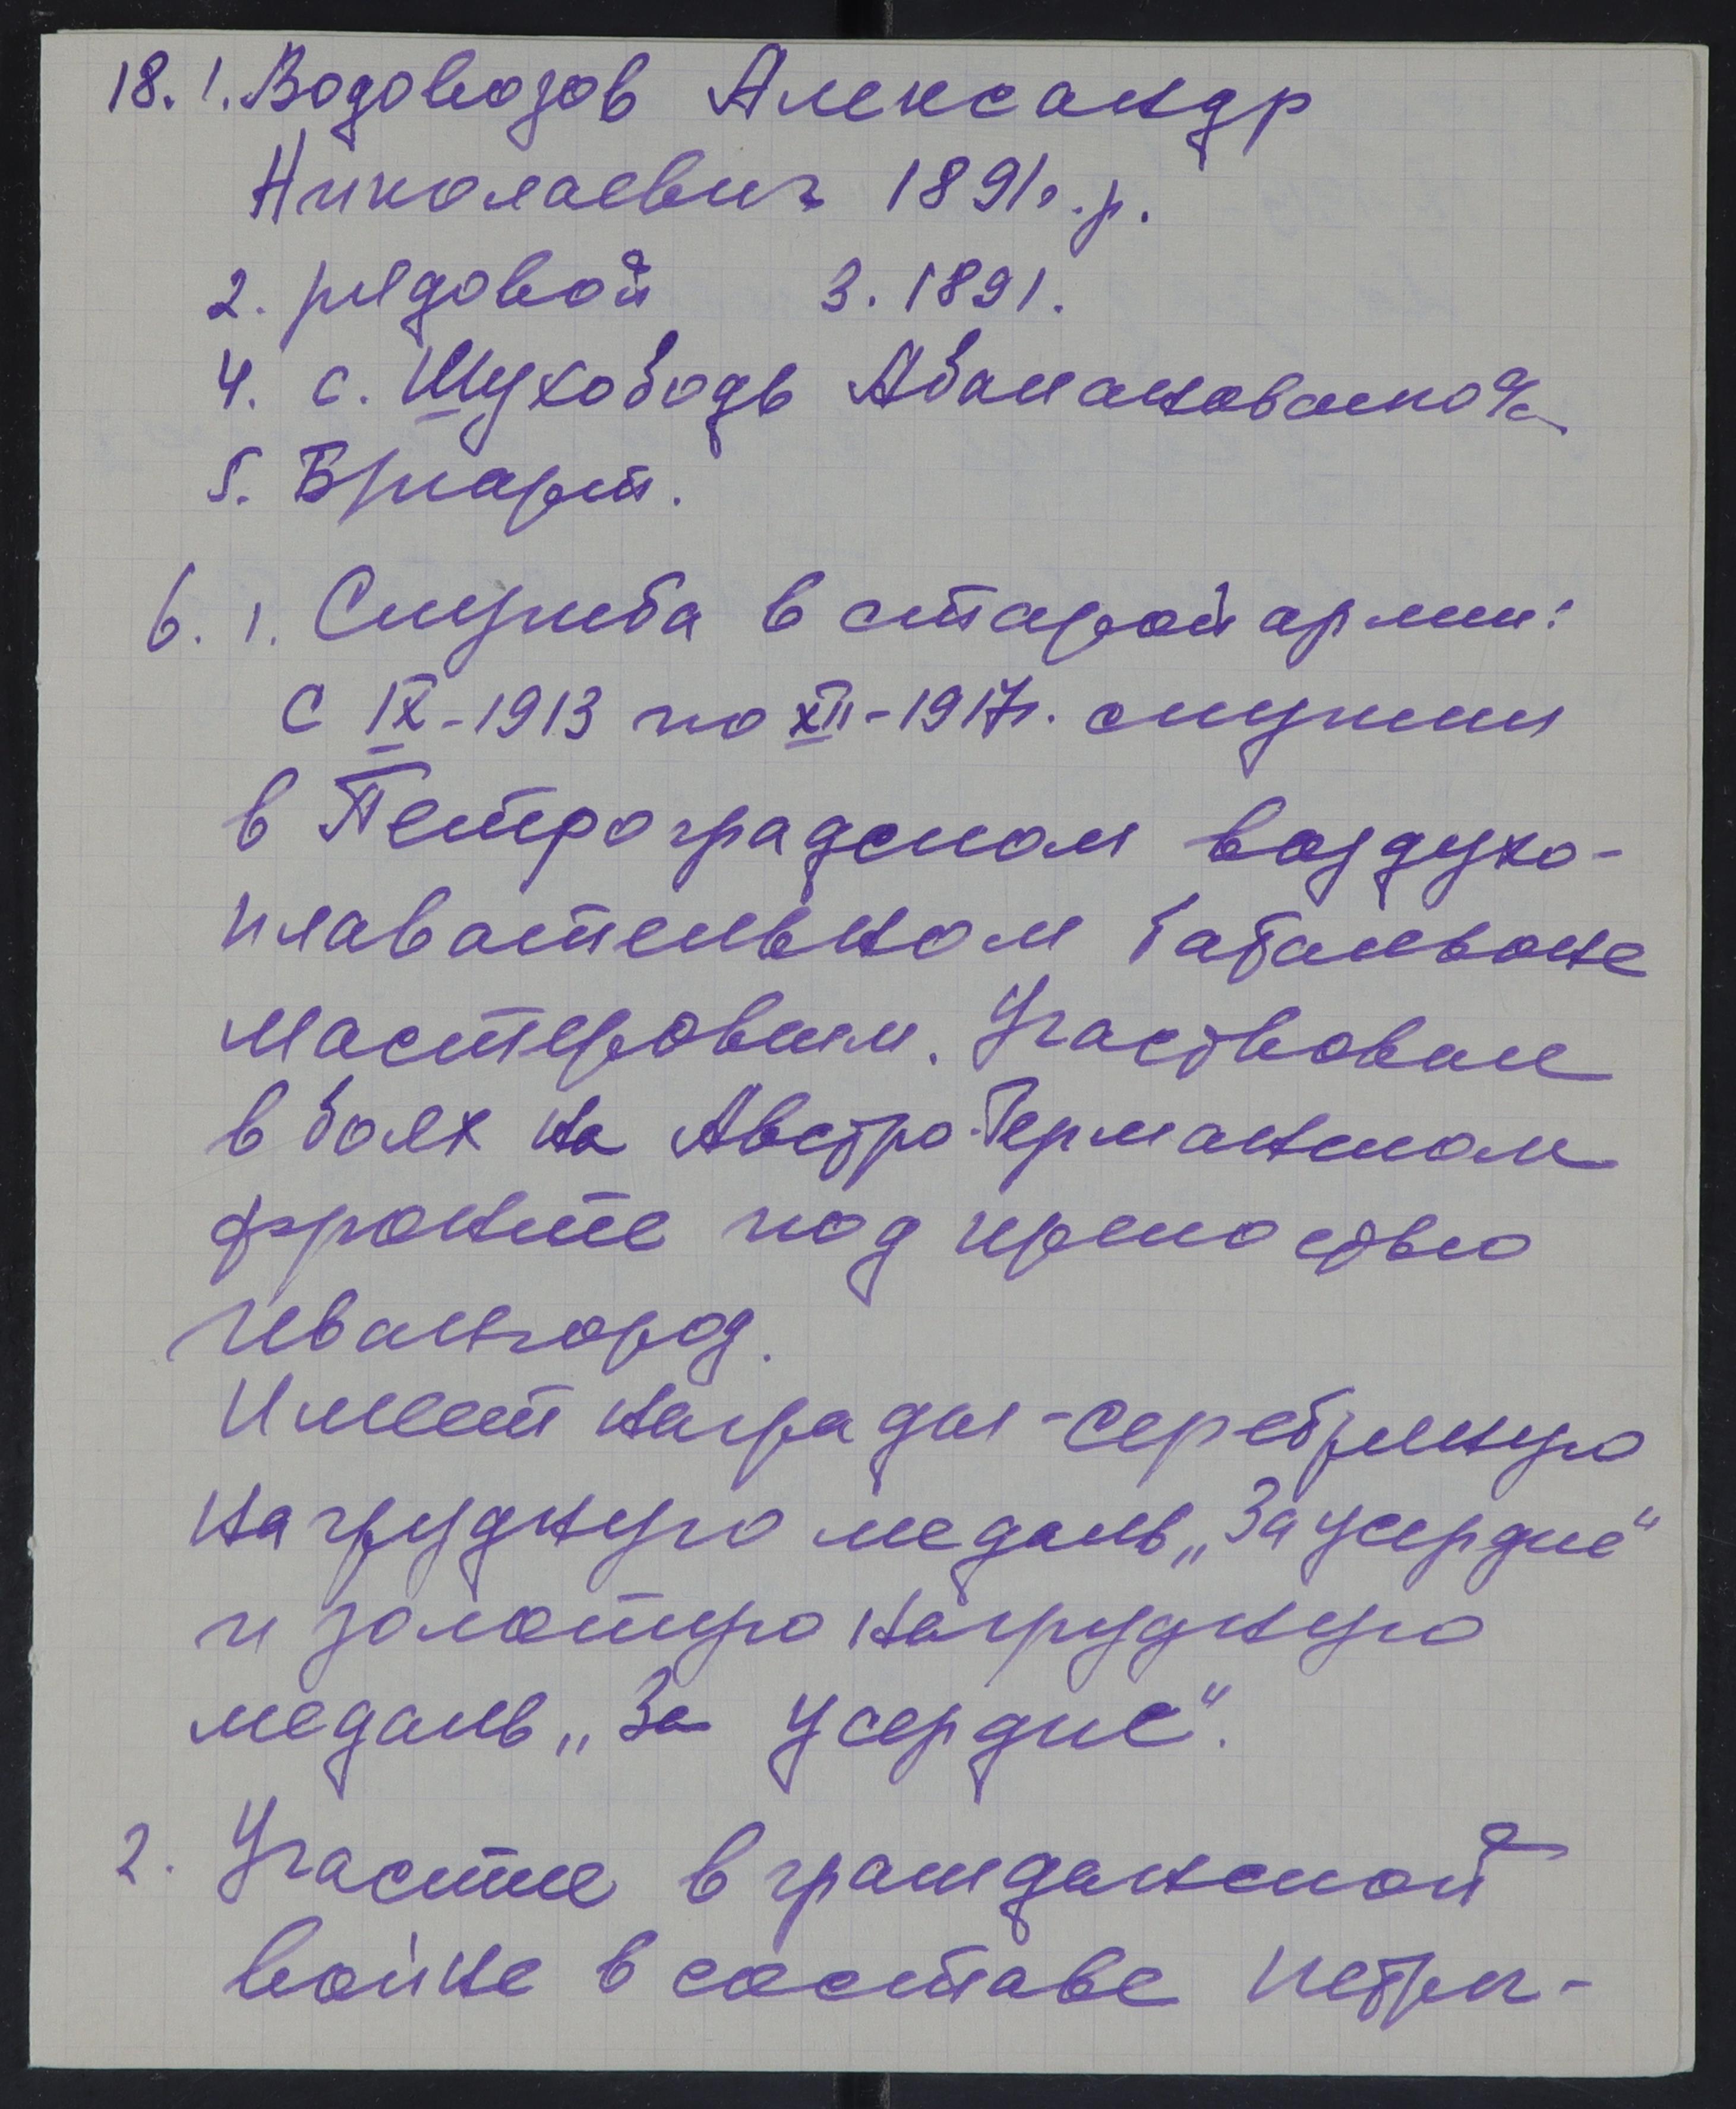 18. 1. Водовозов Александр
Николаевич 1891г.р.
2. рядовой 3. 1891.
4. с. Шухободь Абакановского с/с
5. Б/парт.
6. 1. Служба в старой армии:
С IX-1913 по XII-1917г. служил
в Петроградском воздухо-
плавательном батальоне
мастеровым. Участвовал
в боях на Австро-Германском
фронте под крепостью
Ивангород.
Имеет награды - серебряную
нагрудную медаль „За усердие“
и золотую нагрудную
медаль „За усердие“.
2. Участие в гражданской
войне в составе Петро-